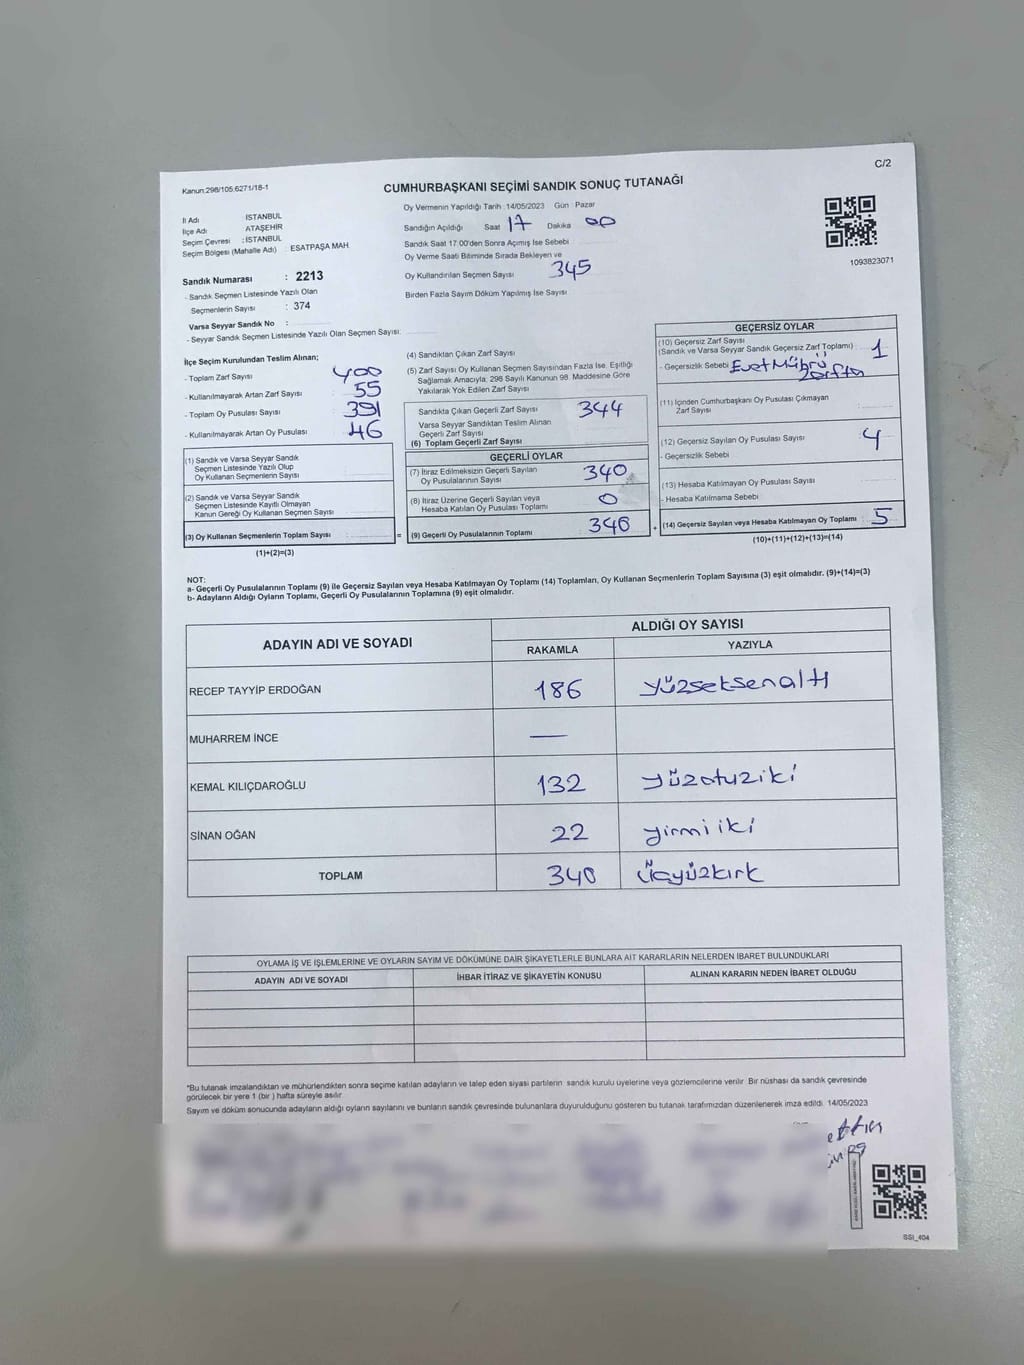 Kanun:298/105;6271/18-1
C/2
CUMHURBAŞKANI SEÇİMİ SANDIK SONUÇ TUTANAĞI
İl Adı İSTANBUL
İlçe Adı ATAŞEHİR
Seçim Çevresi : İSTANBUL
Seçim Bölgesi (Mahalle Adı) : ESATPAŞA MAH.
Sandık Numarası : 2213
- Sandık Seçmen Listesinde Yazılı Olan
Seçmenlerin Sayısı : 374
Varsa Seyyar Sandık No :
- Seyyar Sandık Seçmen Listesinde Yazılı Olan Seçmen Sayısı:
Oy Vermenin Yapıldığı Tarih :14/05/2023 Gün : Pazar
Sandığın Açıldığı Saat 17 Dakika 00
Sandık Saat 17:00'den Sonra Açımış İse Sebebi
Oy Verme Saati Bitiminde Sırada Bekleyen ve
Oy Kullandırılan Seçmen Sayısı 345
Birden Fazla Sayım Döküm Yapılmış İse Sayısı
1093823071
İlçe Seçim Kurulundan Teslim Alınan;
- Toplam Zarf Sayısı 400
- Kullanılmayarak Artan Zarf Sayısı 55
- Toplam Oy Pusulası Sayısı 391
- Kullanılmayarak Artan Oy Pusulası 46
(1) Sandık ve Varsa Seyyar Sandık
Seçmen Listesinde Yazılı Olup
Oy Kullanan Seçmenlerin Sayısı
(2) Sandık ve Varsa Seyyar Sandık
Seçmen Listesinde Kayıtlı Olmayan
Kanun Gereği Oy Kullanan Seçmen Sayısı
(3) Oy Kullanan Seçmenlerin Toplam Sayısı
(1)+(2)=(3)
=
(4) Sandıktan Çıkan Zarf Sayısı
(5) Zarf Sayısı Oy Kullanan Seçmen Sayısından Fazla İse, Eşitliği
Sağlamak Amacıyla; 298 Sayılı Kanunun 98. Maddesine Göre
Yakılarak Yok Edilen Zarf Sayısı
Sandıkta Çıkan Geçerli Zarf Sayısı 344
Varsa Seyyar Sandıktan Teslim Alınan
Geçerli Zarf Sayısı
(6) Toplam Geçerli Zarf Sayısı
GEÇERLİ OYLAR
(7) İtiraz Edilmeksizin Geçerli Sayılan
Oy Pusulalarının Sayısı 340
(8) İtiraz Üzerine Geçerli Sayılan veya
Hesaba Katılan Oy Pusulası Toplamı 0
(9) Geçerli Oy Pusulalarının Toplamı 340
+
GEÇERSİZ OYLAR
(10) Geçersiz Zarf Sayısı
(Sandık ve Varsa Seyyar Sandık Geçersiz Zarf Toplamı) 1
- Geçersizlik Sebebi Evet Mührü
zarfta
(11) İçinden Cumhurbaşkanı Oy Pusulası Çıkmayan
Zarf Sayısı
(12) Geçersiz Sayılan Oy Pusulası Sayısı 4
- Geçersizlik Sebebi
(13) Hesaba Katılmayan Oy Pusulası Sayısı
- Hesaba Katılmama Sebebi
(14) Geçersiz Sayılan veya Hesaba Katılmayan Oy Toplamı : 5
(10)+(11)+(12)+(13)=(14)
NOT:
a- Geçerli Oy Pusulalarının Toplamı (9) ile Geçersiz Sayılan veya Hesaba Katılmayan Oy Toplamı (14) Toplamları, Oy Kullanan Seçmenlerin Toplam Sayısına (3) eşit olmalıdır. (9)+(14)=(3)
b- Adayların Aldığı Oyların Toplamı, Geçerli Oy Pusulalarının Toplamına (9) eşit olmalıdır.
ADAYIN ADI VE SOYADI
ALDIĞI OY SAYISI
RAKAMLA YAZIYLA
RECEP TAYYİP ERDOĞAN 186 yüzseksenaltı
MUHARREM İNCE —
KEMAL KILIÇDAROĞLU 132 yüzotuziki
SİNAN OĞAN 22 yirmiiki
TOPLAM 340 üçyüzkırk
OYLAMA İŞ VE İŞLEMLERİNE VE OYLARIN SAYIM VE DÖKÜMÜNE DAİR ŞİKAYETLERLE BUNLARA AİT KARARLARIN NELERDEN İBARET BULUNDUKLARI
ADAYIN ADI VE SOYADI İHBAR İTİRAZ VE ŞİKAYETİN KONUSU ALINAN KARARIN NEDEN İBARET OLDUĞU
*Bu tutanak imzalandıktan ve mühürlendikten sonra seçime katılan adayların ve talep eden siyasi partilerin sandık kurulu üyelerine veya gözlemcilerine verilir. Bir nüshası da sandık çevresinde
görülecek bir yere 1 (bir) hafta süreyle asılır.
Sayım ve döküm sonucunda adayların aldığı oyların sayılarını ve bunların sandık çevresinde bulunanlara duyurulduğunu gösteren bu tutanak tarafımızdan düzenlenerek imza edildi. 14/05/2023
SSI_404